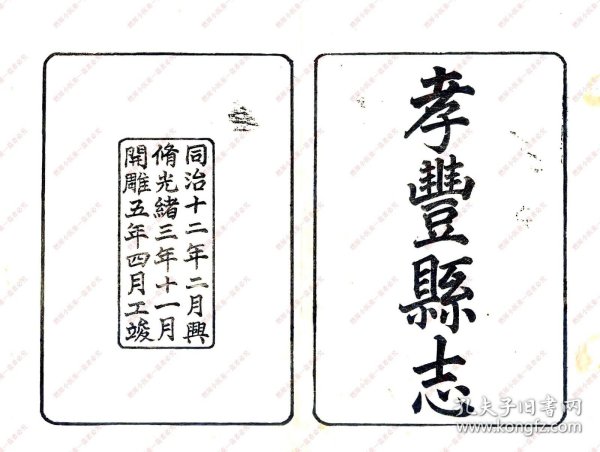 孝豐縣志
同治十二年二月興
脩光緒三年十一月
開雕五年四月工竣
孔夫子旧书网
www.kongfz.com